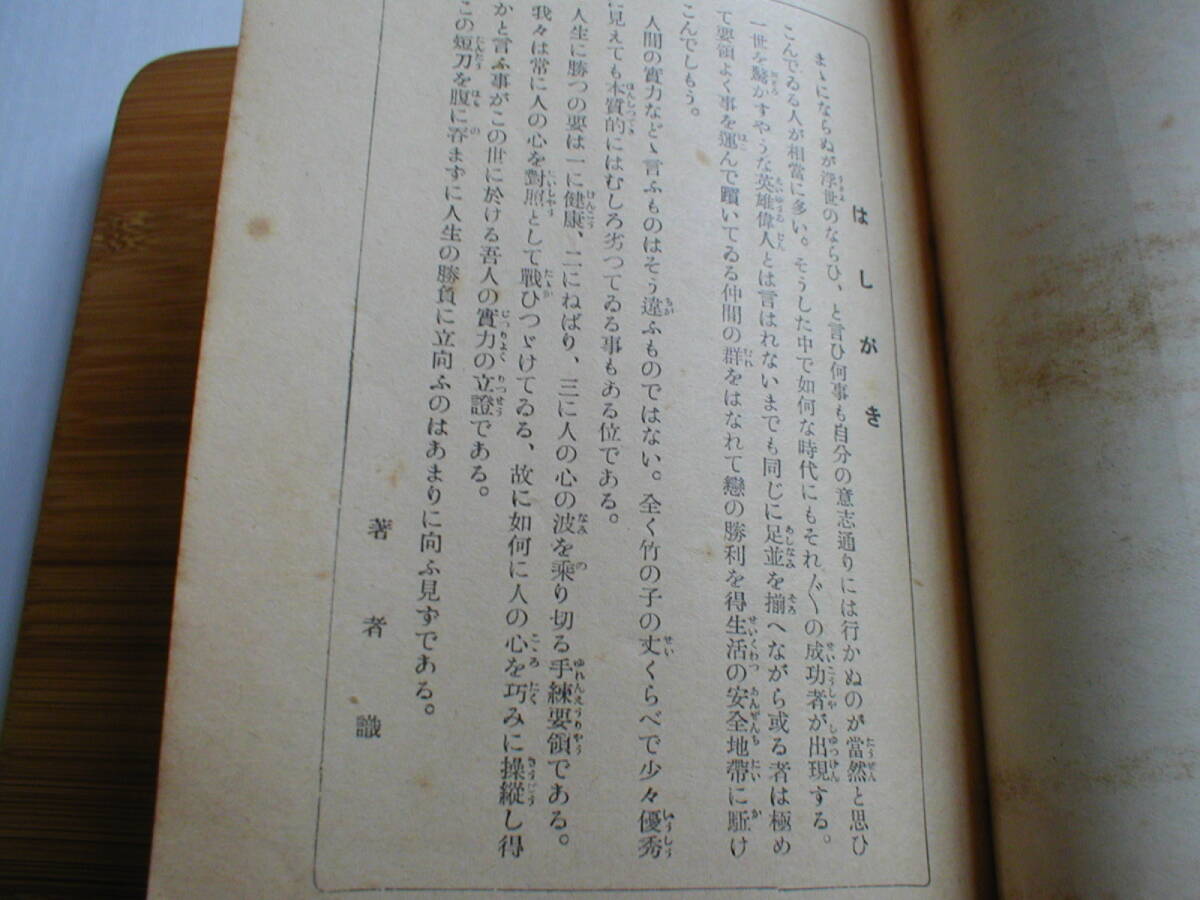 はしがき
まゝにならぬが浮世のならひ、と言ひ何事も自分の意志通りには行かぬのが當然と思ひ
こんでゐる人が相當に多い。そうした中で如何な時代にもそれ〴〵の成功者が出現する。
一世を驚かすやうな英雄偉人とは言はれないまでも同じに足並を揃へながら或る者は極め
て要領よく事を運んで躓いてゐる仲間の群をはなれて戀の勝利を得生活の安全地帶に駈け
こんでしもう。
人間の實力など言ふものはそう違ふものではない。全く竹の子の丈くらべで少々優秀
に見えても本質的にはむしろ劣つてゐる事もある位である。
人生に勝つの要は一に健康、二にねばり、三に人の心の波を乘り切る手練要領である。
我々は常に人の心を對照として戰ひつゞけてゐる、故に如何に人の心を巧みに操縱し得
かと言ふ事がこの世に於ける吾人の實力の立證である。
この短刀を腹に呑まずに人生の勝負に立向ふのはあまりに向ふ見ずである。
著者識